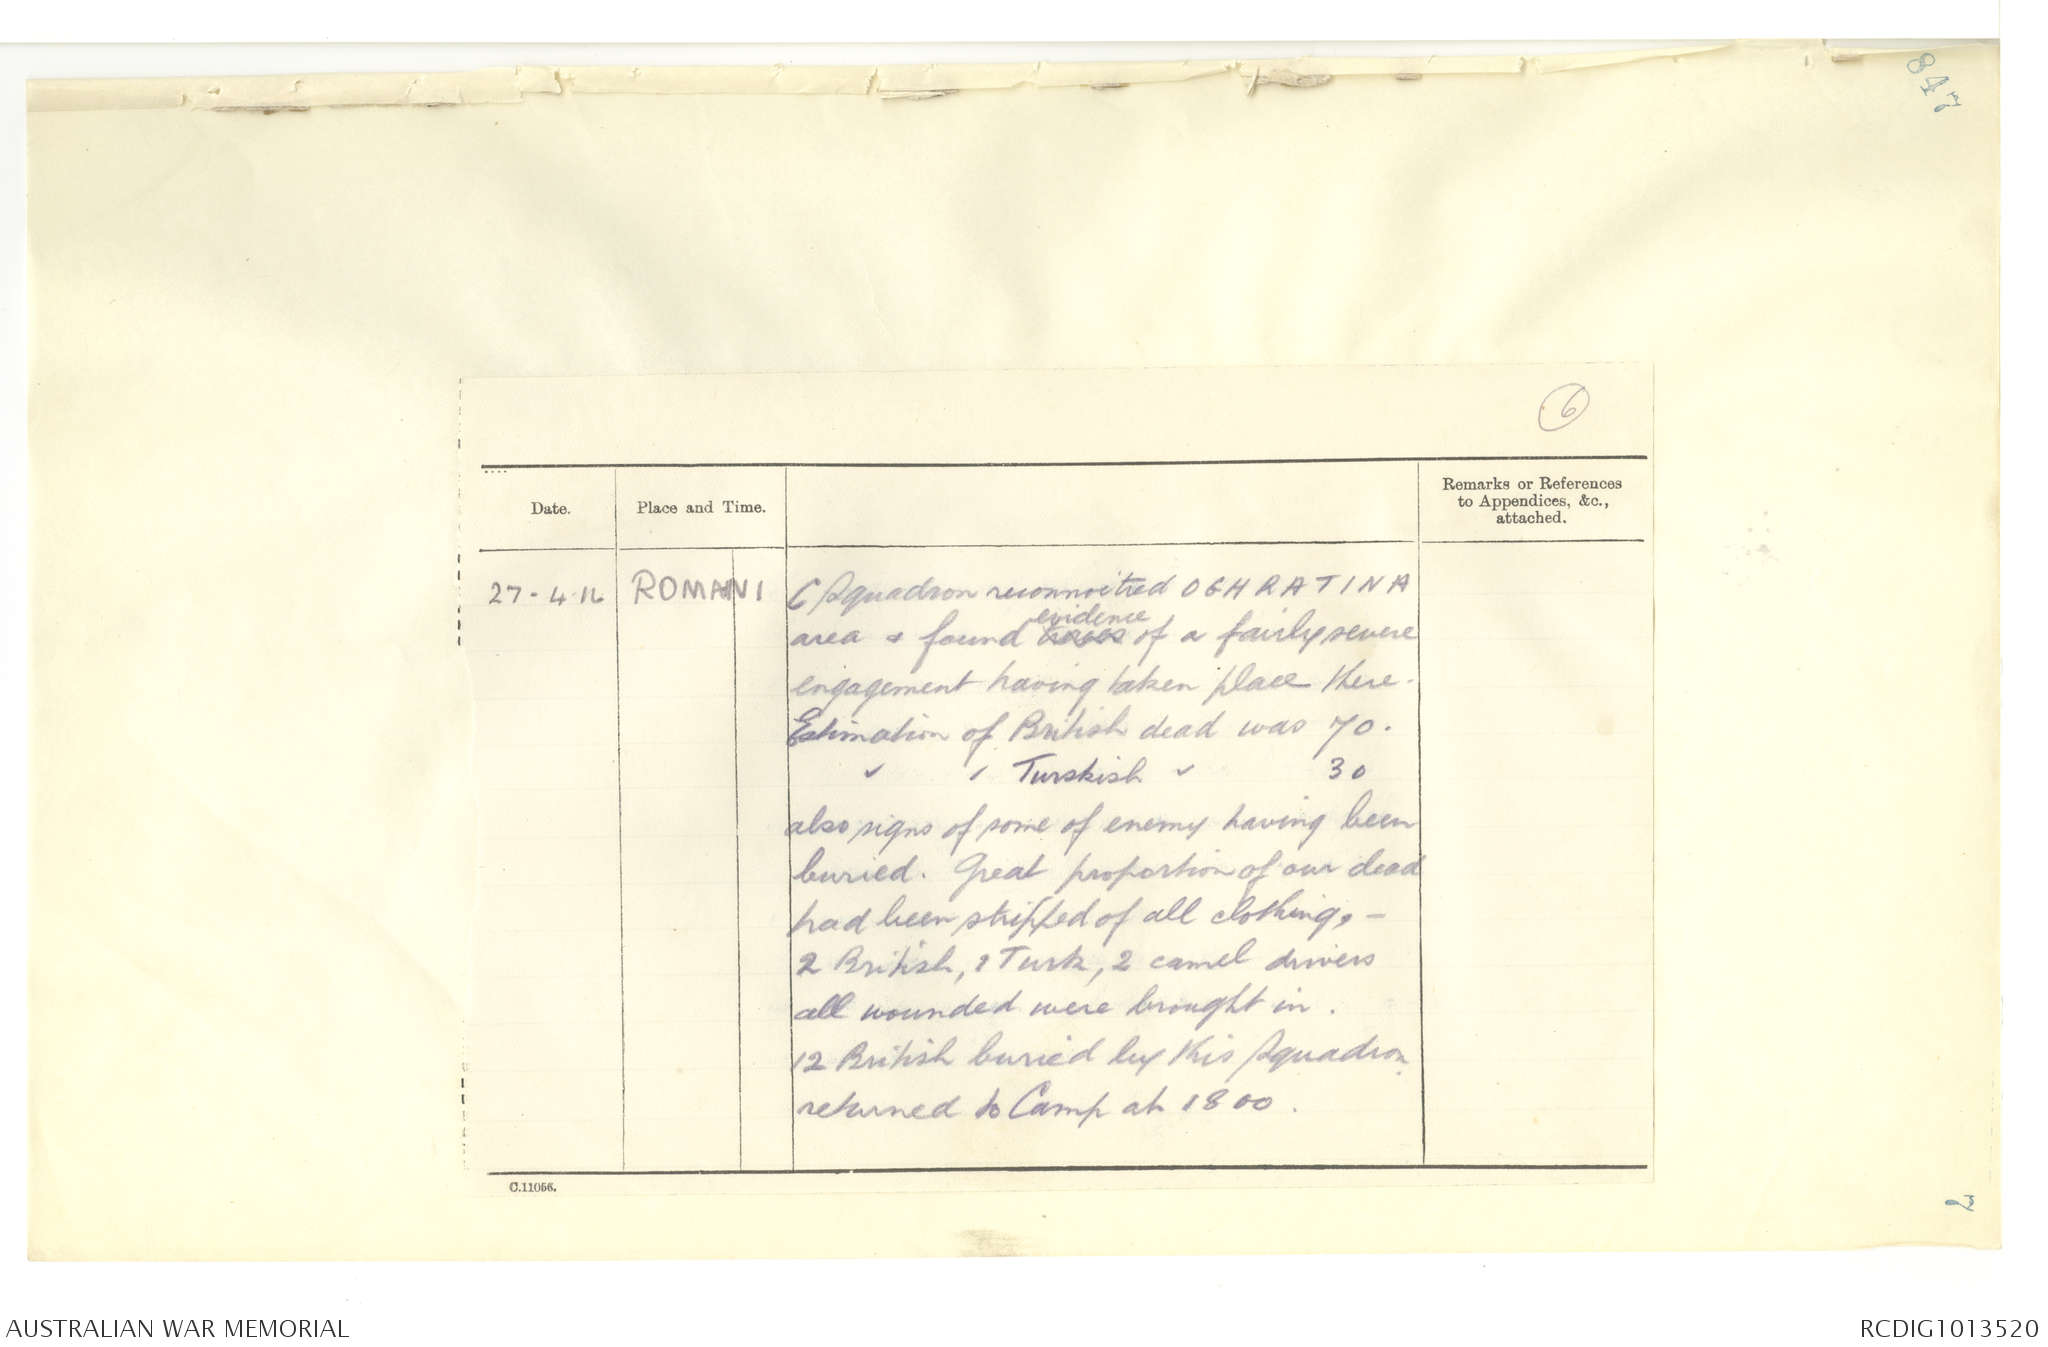 847
6
Date.
Place and Time.
Remarks or References
to Appendices, &c.,
attached.
27-4-16
ROMANI
C Squadron reconnoitred OGHRATINA
evidence
area & found of a fairly severe
engagement having taken place there.
Estimation of British dead was 70.
" " Turskish " 30
also signs of some of enemy having been
buried. Great proportion of our dead
had been stripped of all clothing, -
2 British, 1 Turk, 2 camel drivers
all wounded were brought in.
12 British buried by this Squadron
returned to Camp at 1800.
C.11056.
2
AUSTRALIAN WAR MEMORIAL
RCDIG1013520